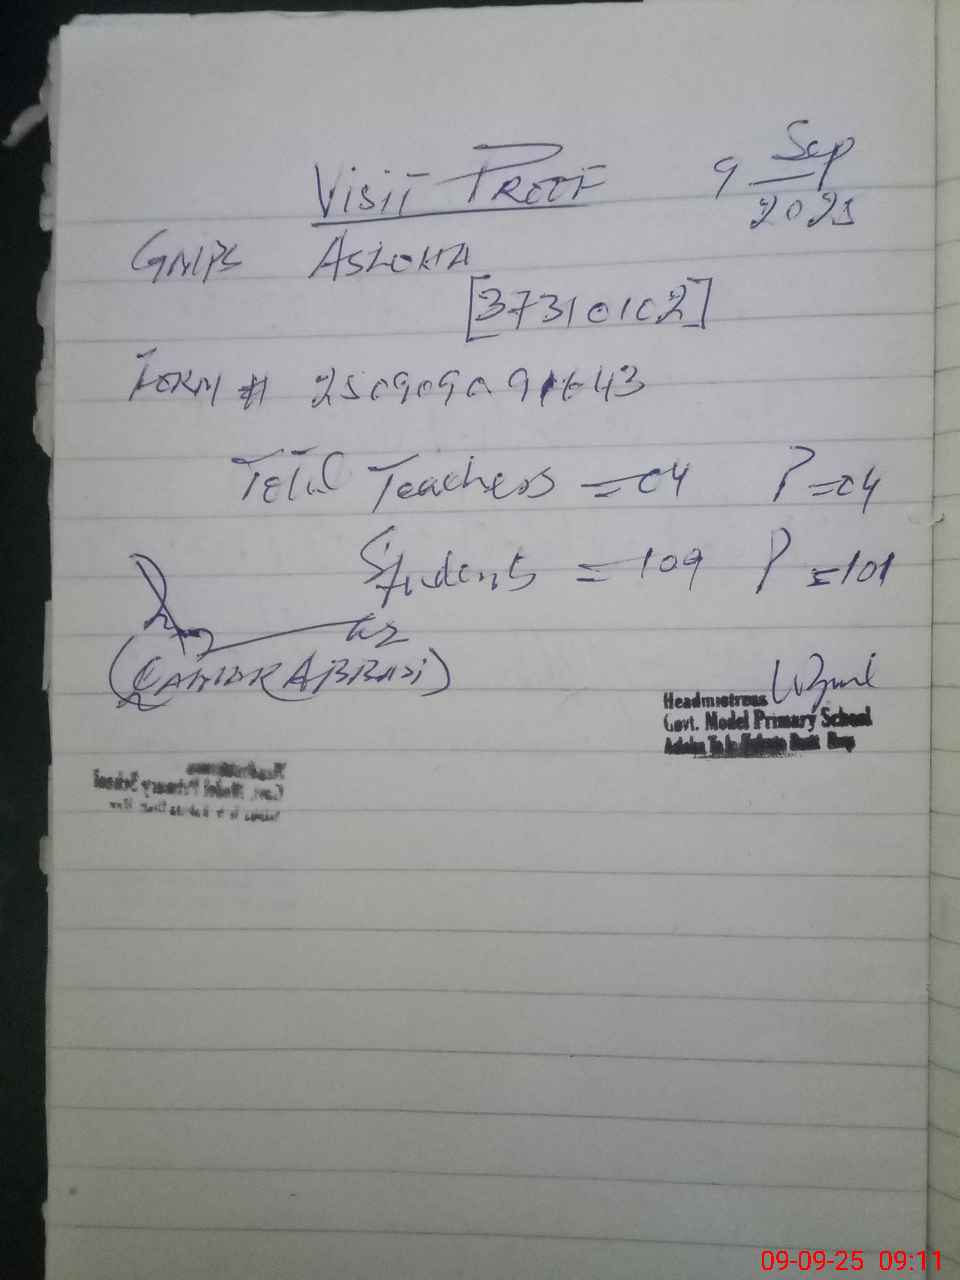 VISIT PROOF 9 Sep 2025
GMPS ASLOHA
[37310102]
FORM # 250909091643
Total Teachers = 04 P = 04
Students = 109 P = 101
ABBASI)
Headmistress
Govt. Model Primary School
09-09-25 09:11